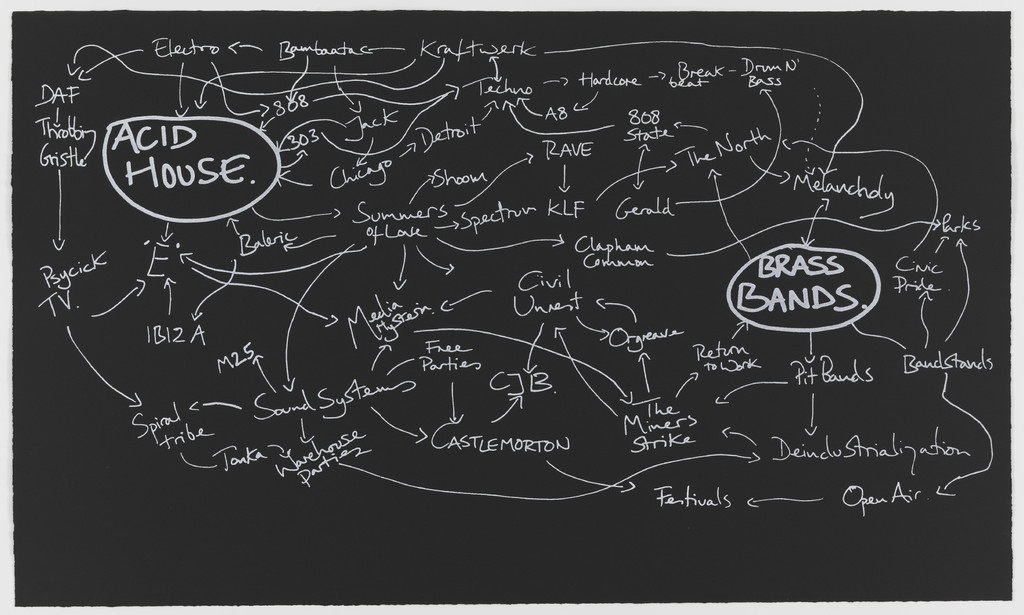 Electro
Bambaataa
Kraftwerk
DAF
Throbbin
Gristle
808
303
Jack
Techno
Hardcore
Break
beat
Drum N'
Bass
A8
808
State
ACID
HOUSE.
Chicago
Detroit
RAVE
The North
Melancholy
Shoom
Summers
of Love
Spectrum
KLF
Gerald
Parks
Baleric
Clapham
Common
BRASS
BANDS.
Civic
Pride.
.'E'.
Psycick
TV.
IBIZA
Media
Hysteria.
Civil
Unrest
Orgreave
M25
Free
Parties
CJB.
Return
to Work
Pit Bands
Bandstands
Spiral
tribe
Sound Systems
CASTLEMORTON
The
Miners
Strike
Deindustrialization
Tonka
Warehouse
Parties
Festivals
Open Air.